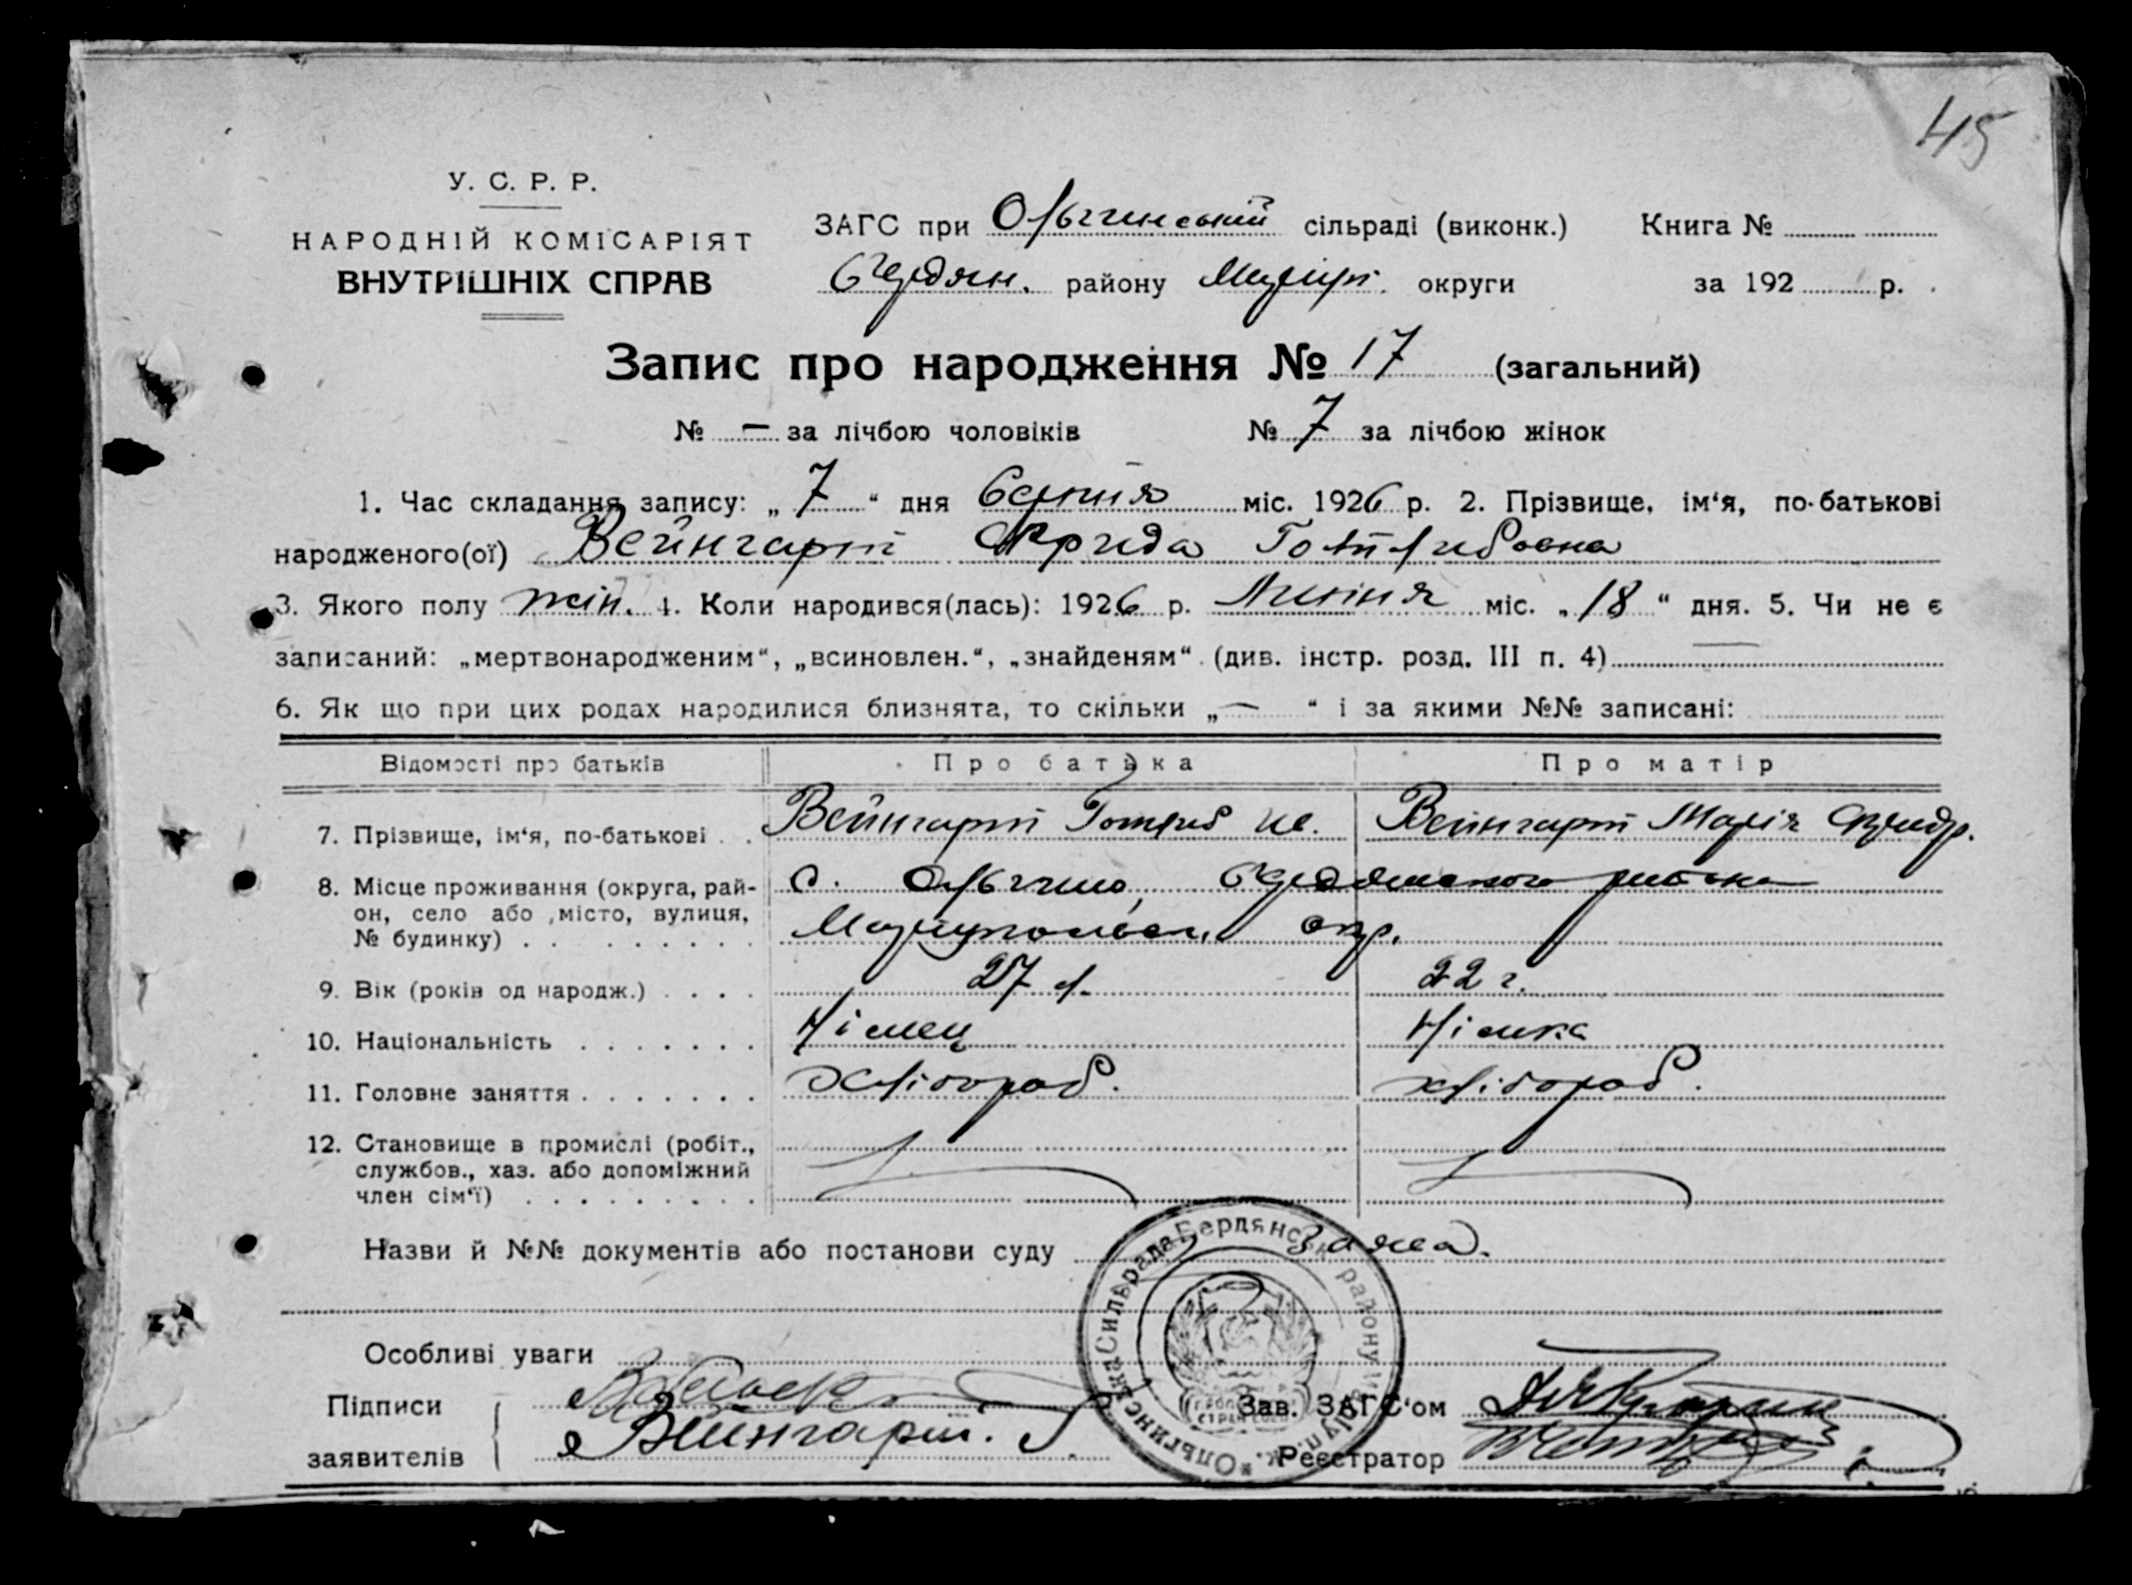 45
У. С. Р. Р.
НАРОДНІЙ КОМІСАРІЯТ
ВНУТРІШНІХ СПРАВ
ЗАГС при Ольгинській сільраді (виконк.) Книга №
Бердян. району Маріуп. округи за 192 р.
Запис про народження № 17 (загальний)
№ — за лічбою чоловіків № 7 за лічбою жінок
1. Час складання запису: „ 7 “ дня Серпня міс. 1926 р. 2. Прізвище, ім‘я, по-батькові
народженого(ої) Вейнгарт Фрида Готлибовна
3. Якого полу жін. 4. Коли народився(лась): 1926 р. Липня міс. „ 18 “ дня. 5. Чи не є
записаний: „мертвонародженим“, „всиновлен.“, „знайденям“ (див. інстр. розд. III п. 4) —
6. Як що при цих родах народилися близнята, то скільки „ — “ і за якими №№ записані:
Відомості про батьків Про батька Про матір
7. Прізвище, ім‘я, по-батькові . . Вейнгарт Готлиб Ив. Вейнгарт Марія Фридр.
8. Місце проживання (округа, рай-
он, село або місто, вулиця,
№ будинку) . . . . . . . .
с. Ольгино, Бердянского
Мариупольск. окр.
9. Вік (років од народж.) . . . . 27 л. 22 г.
10. Національність . . . . . . . Німец Німка
11. Головне заняття . . . . . . . Хлібороб. хлібороб.
12. Становище в промислі (робіт.,
службов., хаз. або допоміжний
член сім‘ї) . . . . . . . . .
Назви й №№ документів або постанови суду Заява.
Особливі уваги
Підписи
заявителів
Вейнгарт.
Зав. ЗАГС‘ом
Реєстратор
Ольгинська Сильрада Бердянськ району